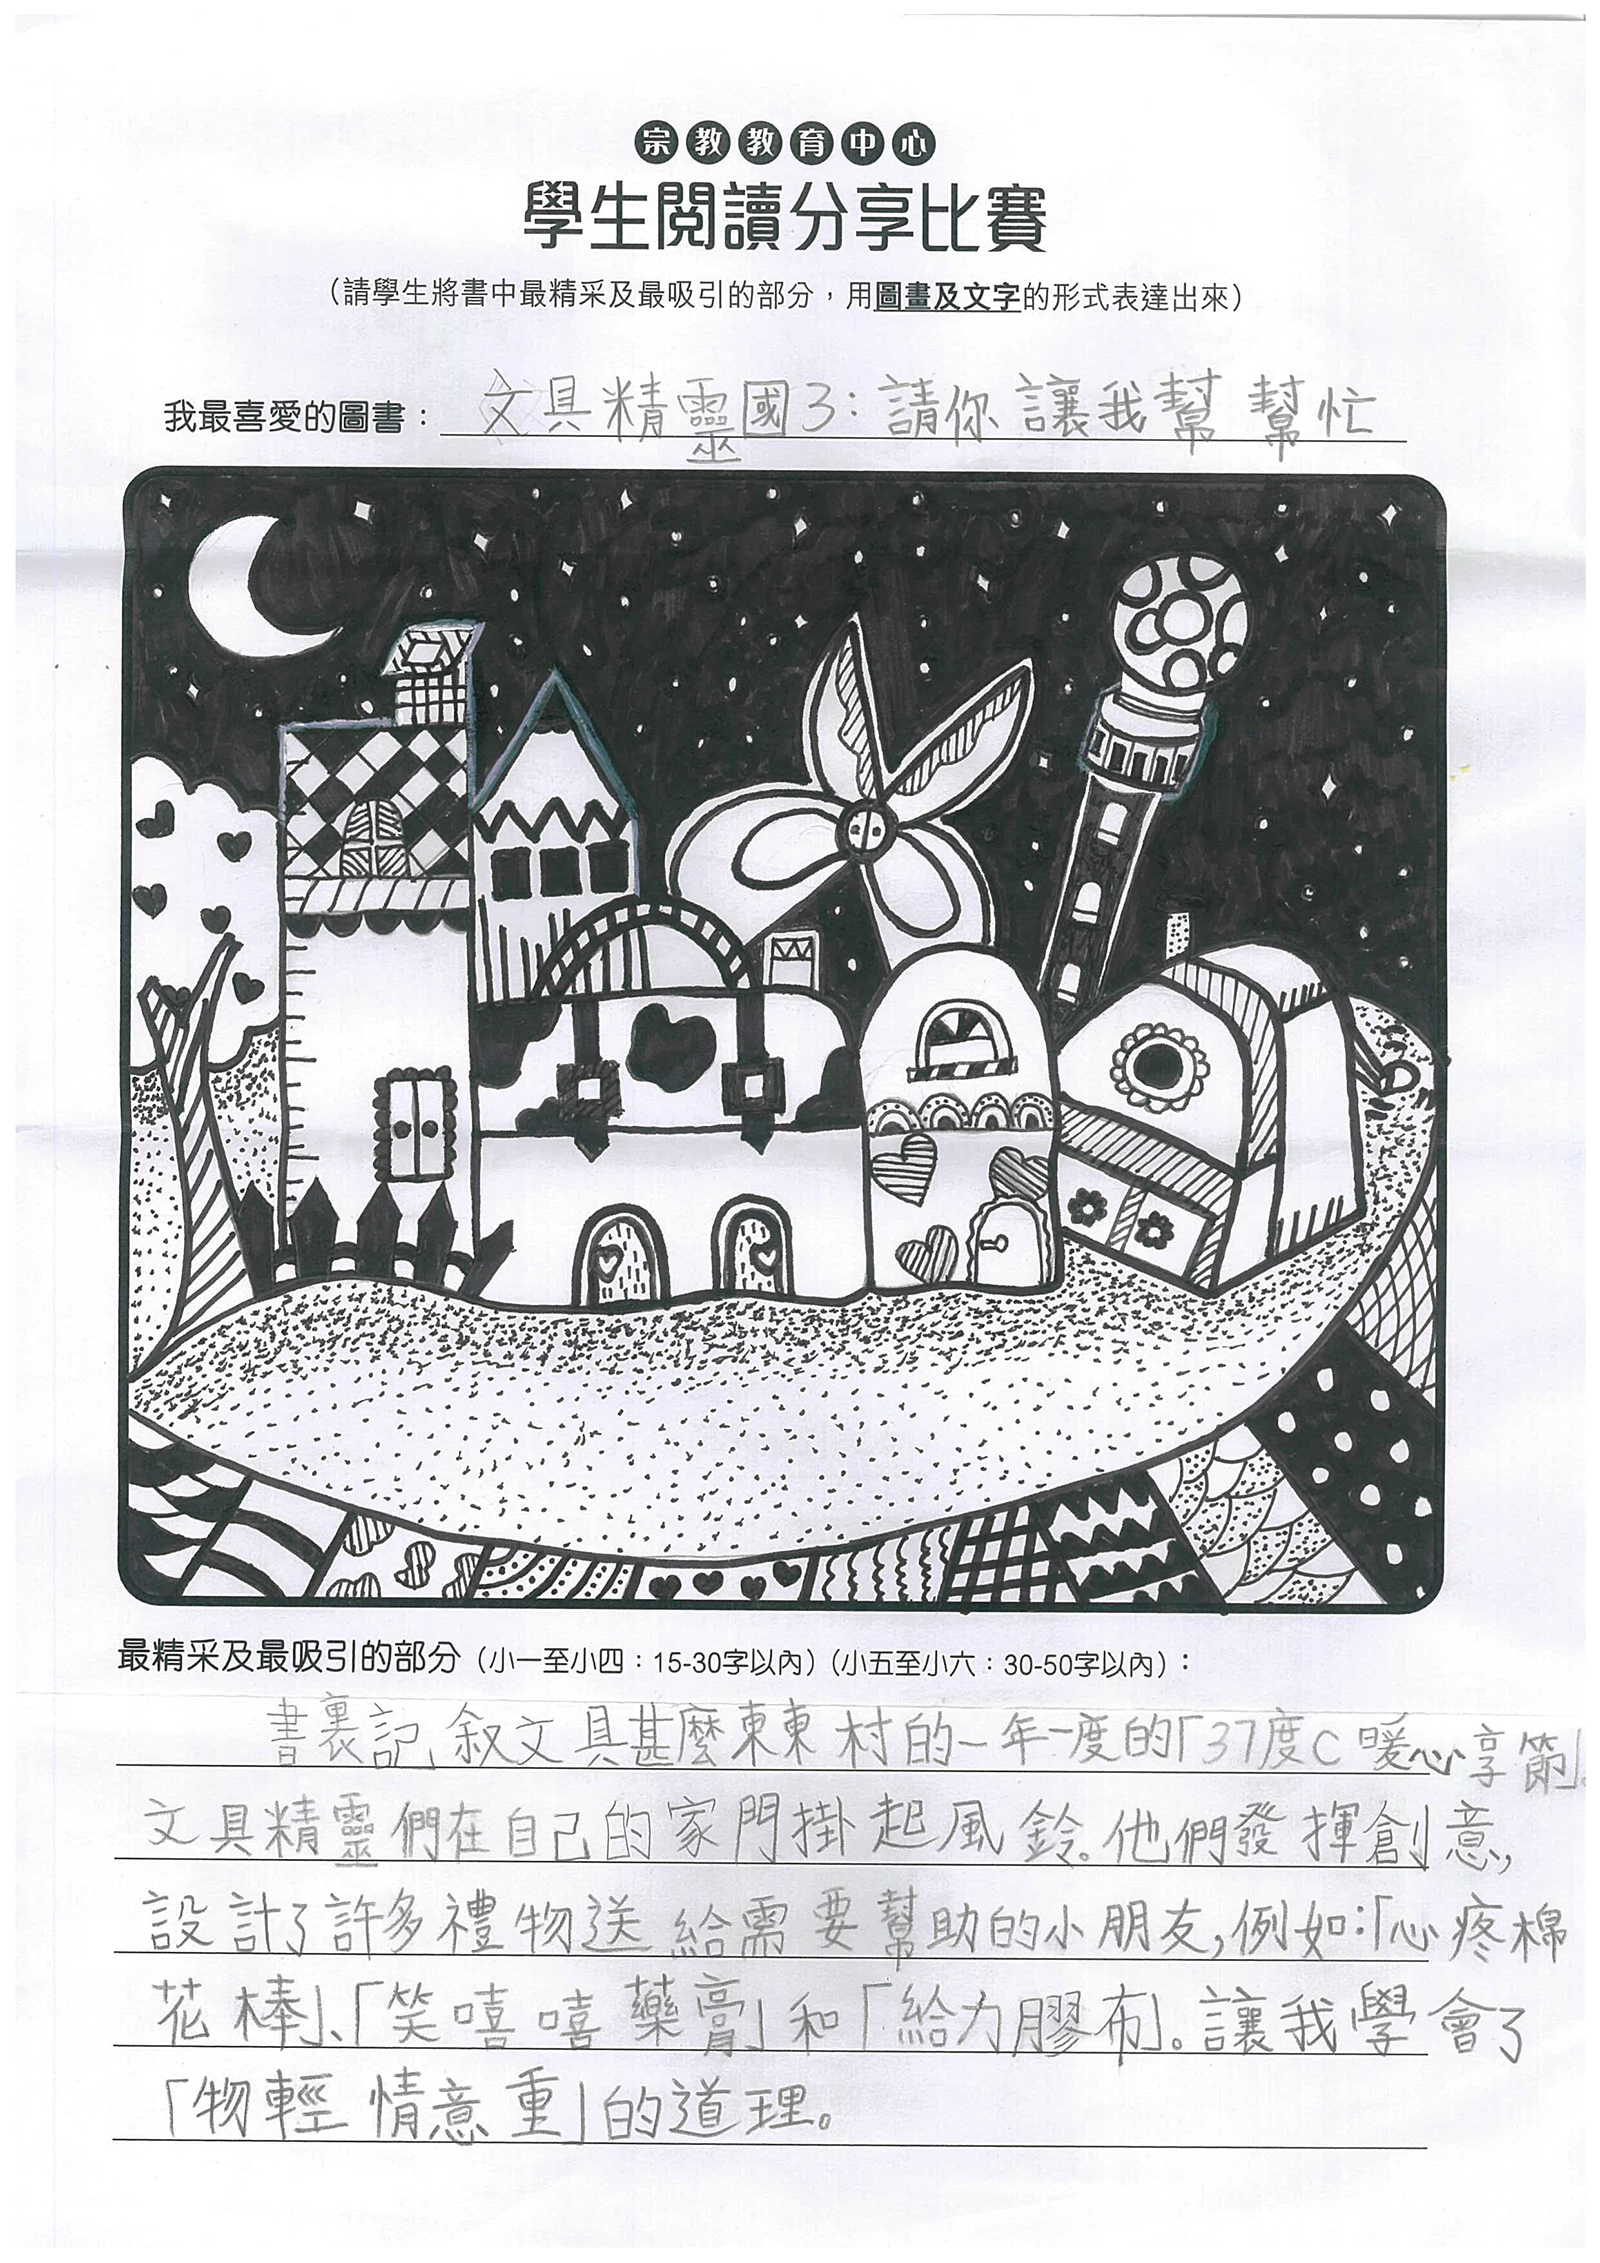 宗教教育中心
學生閱讀分享比賽
（請學生將書中最精采及最吸引的部分，用圖畫及文字的形式表達出來）
我最喜愛的圖書：文具精靈國3：請你讓我幫幫忙
最精采及最吸引的部分（小一至小四：15-30字以內）（小五至小六：30-50字以內）：
書裏記敘文具甚麼東東村的一年一度的「37度C暖心享節」。
文具精靈們在自己的家門掛起風鈴。他們發揮創意，
設計了許多禮物送給需要幫助的小朋友，例如：「心疼棉
花棒」、「笑嘻嘻藥膏」和「給力膠布」。讓我學會了
「物輕情意重」的道理。